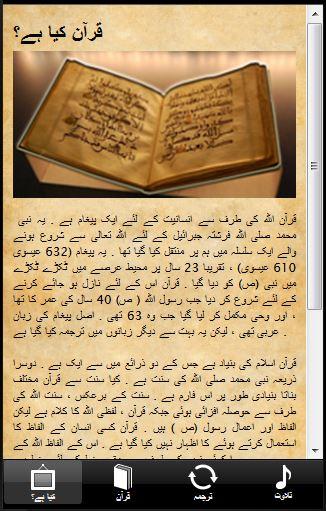 قرآن کیا ہے؟
قرآن اللہ کی طرف سے انسانیت کے لئے ایک پیغام ہے . یہ نبی
محمد صلی اللہ فرشتہ جبرائیل کے لئے اللہ تعالی سے شروع ہونے
والے ایک سلسلہ میں ہم پر منتقل کیا گیا تھا . یہ پیغام (632 عیسوی
610 عیسوی) ، تقریبا 23 سال پر محیط عرصے میں ٹکڑے ٹکڑے
میں نبی (ص) کو دیا گیا . قرآن اس کے لئے نازل ہو جائے کرنے
کے لئے شروع کر دیا جب رسول اللہ ( ص) 40 سال کی عمر کا تھا
، اور وحی مکمل کر لیا گیا جب وہ 63 تھی . اصل پیغام کی زبان
عربی تھی ، لیکن یہ بہت سے دیگر زبانوں میں ترجمہ کیا گیا ہے .
قرآن اسلام کی بنیاد ہے جس کے دو ذرائع میں سے ایک ہے . دوسرا
ذریعہ نبی محمد صلی اللہ کی سنت ہے . کیا سنت سے قرآن مختلف
بناتا بنیادی طور پر اس فارم ہے . سنت کے برعکس ، سنت اللہ کی
طرف سے حوصلہ افزائی ہوئی جبکہ قرآن ، لفظی اللہ کا کلام ہے لیکن
الفاظ اور اعمال رسول (ص ) ہیں . قرآن کسی انسان کے الفاظ کا
استعمال کرتے ہوئے کا اظہار نہیں کیا گیا ہے . اس کے الفاظ اللہ کے
کیا ہے؟
قرآن
ترجمہ
تلاوت